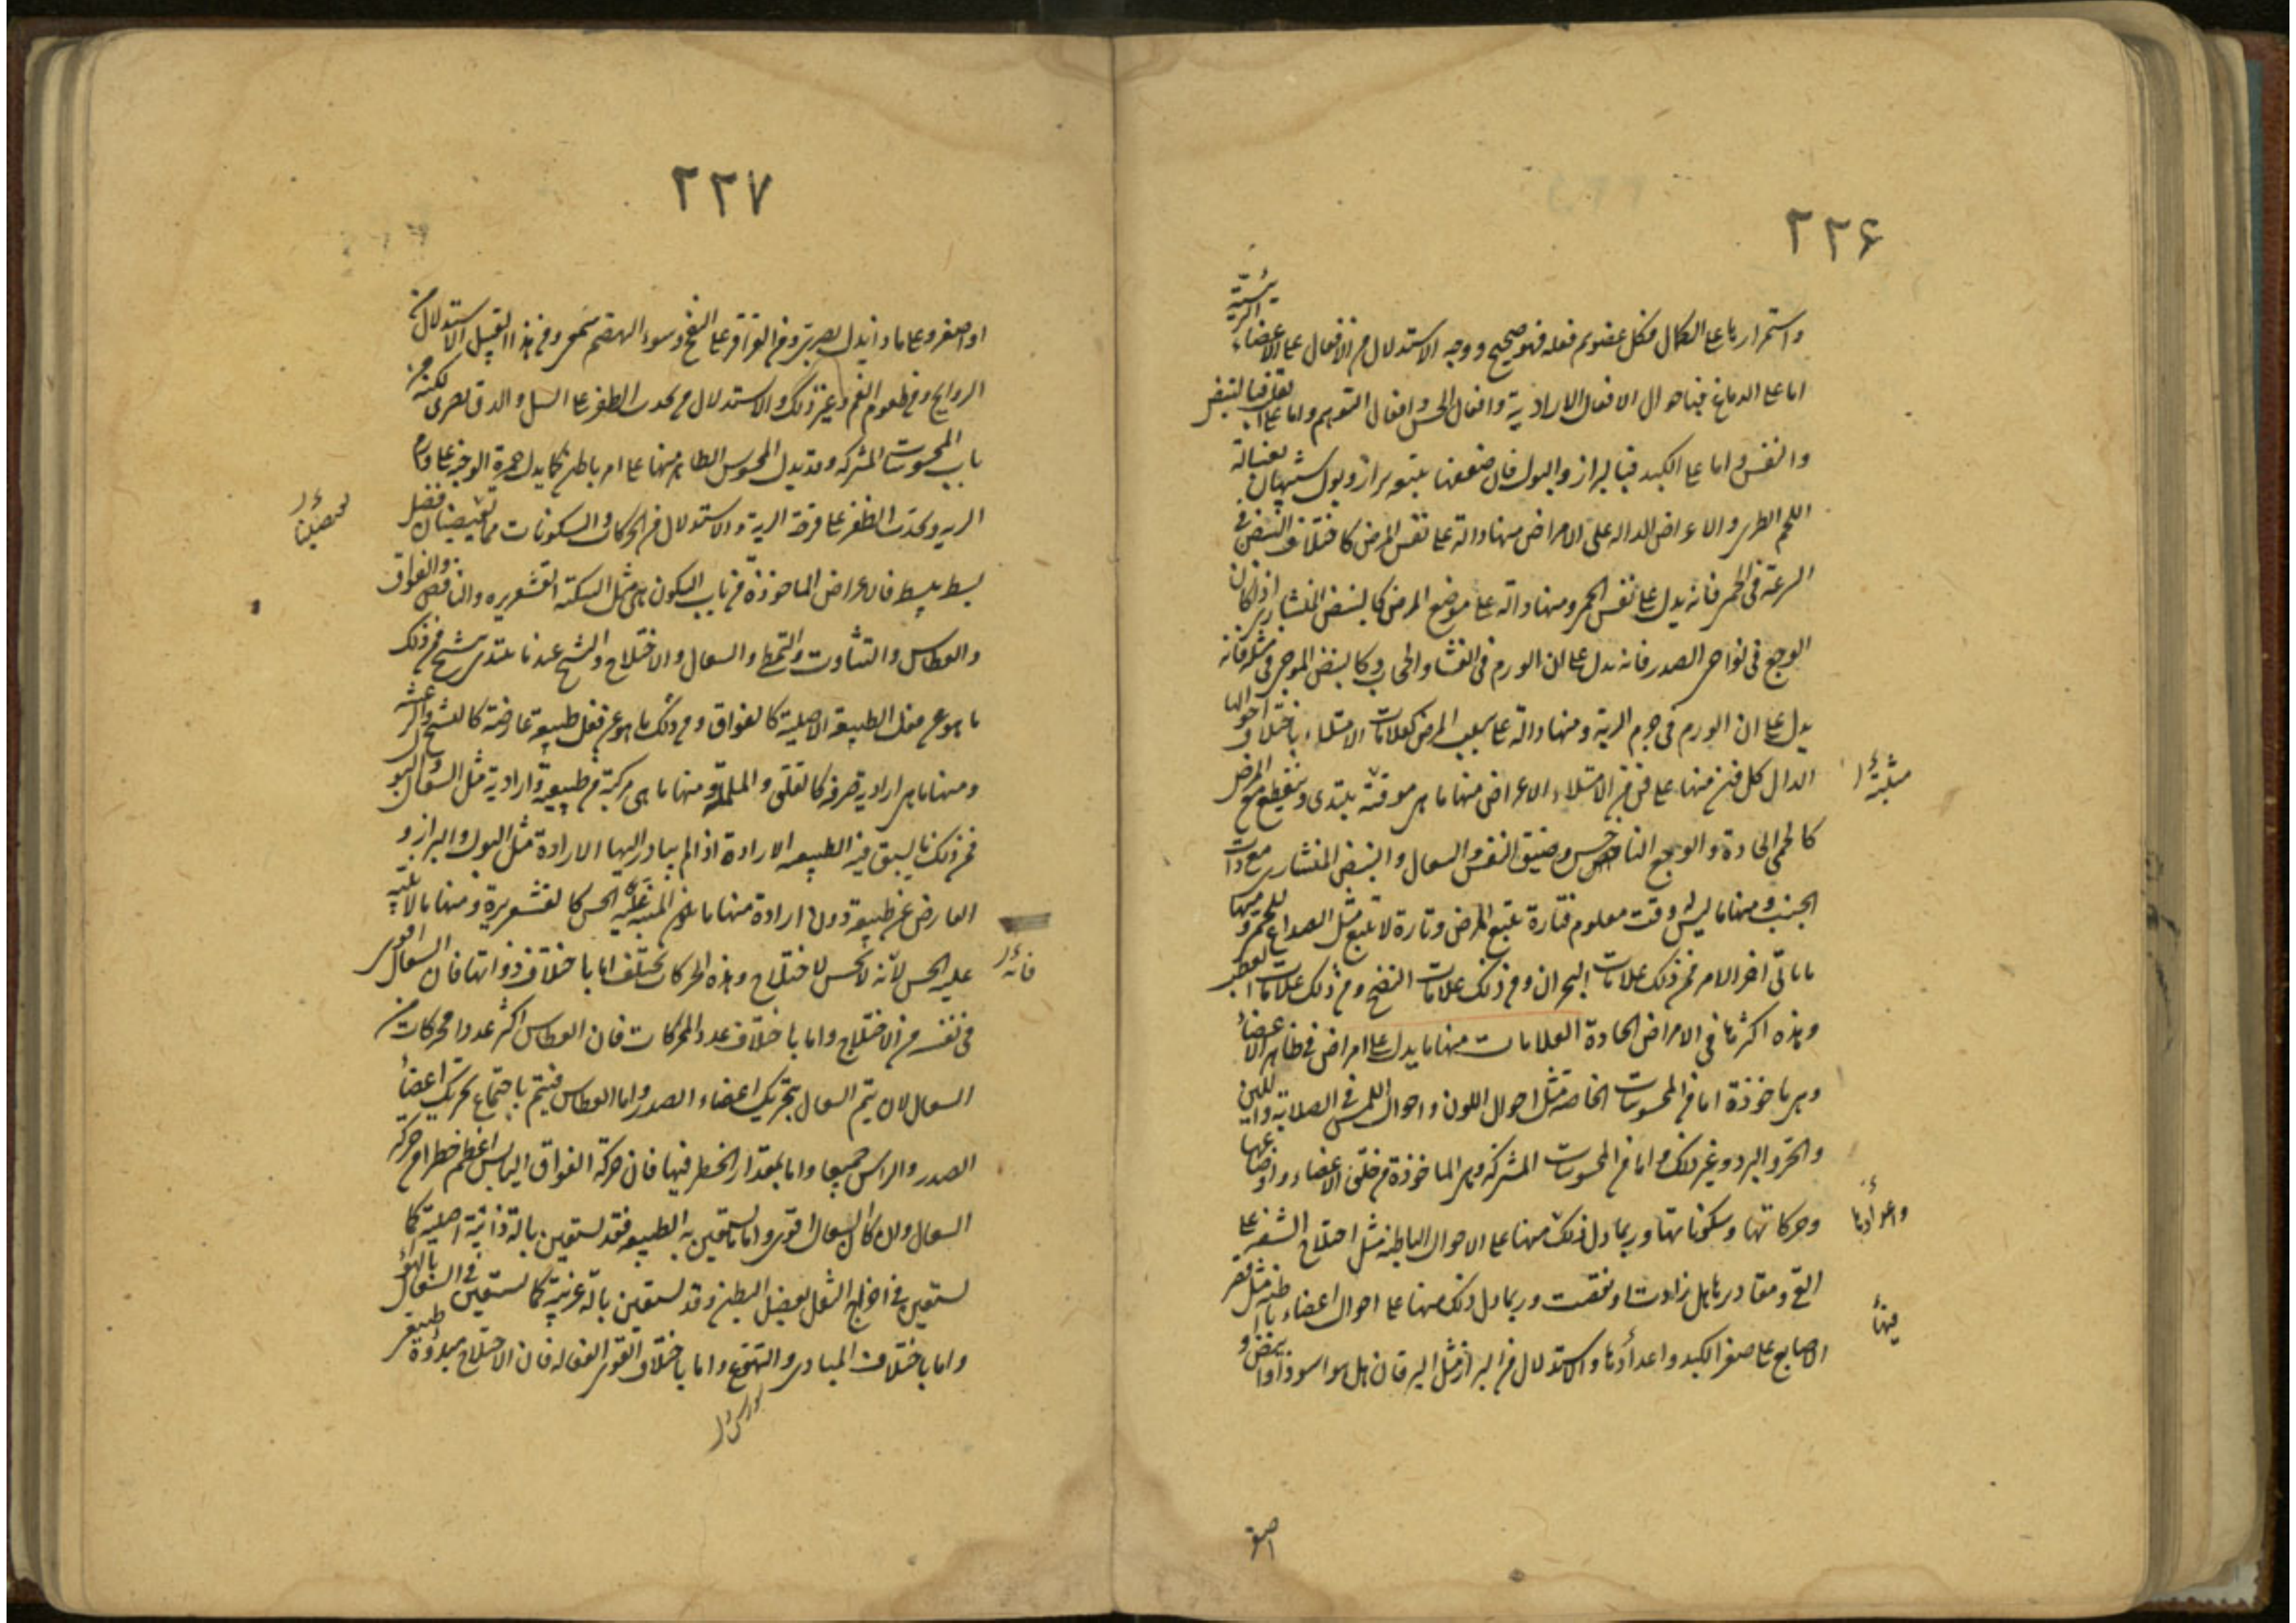 ٢٢۶
واستمرارها على الكمال فكل عضو تم فعله فهو صحيح ووجه الاستدلال من الافعال على الاعضاء الرئيسة
اما على الدماغ فباحوال الافعال الارادية وافعال الحس وافعال التوهم واما على القلب فبالنبض
والنفس واما على الكبد فبالبراز والبول فان ضعفها يتبعه براز وبول شبيهان بغسالة
اللحم الطرى والاعراض الداله على الامراض منها دالة على نفس المرض كاختلاف النبض فى
السرعة فى الحمى فانه يدل على نفس الحمى ومنها دالة على موضع المرض كالنبض المنشارى اذا كان
الوجع فى نواحى الصدر فانه يدل على ان الورم فى الغشاء والحجاب وكالنبض الموجى فى مثله فانه
يدل على ان الورم فى جرم الرية ومنها دالة على سبب المرض كعلامات الامتلاء باختلاف احوالها
الدال كل فن منها على فن من الامتلاء الاعراض منها ما هى موقتة يبتدى وينقطع مع المرض
كالحمى الحادة والوجع الناخس وضيق النفس والسعال والنبض المنشارى مع ذات
الجنب ومنها ما ليس له وقت معلوم فتارة يتبع المرض وتارة لا يتبع مثل الصداع للحمى ومنها
ما ياتى اخر الامر فمن ذلك علامات البحران ومن ذلك علامات النضج ومن ذلك علامات العطب
وهذه اكثرها فى الامراض الحادة العلامات منها ما يدل على امراض فى ظاهر الاعضاء
وهى ماخوذة اما من المحسوسات الخاصة مثل احوال اللون واحوال اللمس فى الصلابة واللين
والحر والبرد وغير ذلك واما من المحسوسات المشتركة وهى الماخوذة من خلق الاعضاء واوضاعها
وحركاتها وسكوناتها وربما دل ذلك منها على الاحوال الباطنة مثل اختلاج الشفة على
القى ومقاديرها هل زادت او نقصت وربما دل ذلك منها على احوال اعضاء باطنة مثل قصر
الاصابع على صغر الكبد واعدادها والاستدلال من البراز مثل اليرقان هل هو اسود او ابيض و
مثبتة
واعدادها
فيها
اصفر
٢٢٧
او اصفر وعلى ماذا يدل بصرى ومن القراقر على النفخ وسوء الهضم سمعى ومن هذا القبيل الاستدلال من
الروايح ومن طعوم الفم وغير ذلك والاستدلال من تحدب الظفر على السل والدق بصرى لكنه من
باب المحسوسات المشتركه وقد يدل المحسوس الظاهر منها على امر باطن كما يدل حمرة الوجنة على ذات
الريه وتحدب الظفر على قرحة الرية والاستدلال من الحركات والسكونات مما يقتضيان فضل
بسط يبسط فالاعراض الماخوذة من باب السكون هى مثل السكتة القشعريره والنافض والفواق
والعطاس والتثاوب والتمطى والسعال والاختلاج والتشنج عندنا يبتدى يتشنج فمن ذلك
ما هو عن فعل الطبيعة الاصلية كالفواق ومن ذلك ما هو عن فعل طبيعة عارضة كالتشنج والرعشة
ومنها ما هى ارادية صرفة كالقلق والململة ومنها ما هى مركبة من طبيعية وارادية مثل السعال والبول
فمن ذلك ما يسبق فيه الطبيعه الارادة اذا لم يبادر اليها الارادة مثل البول والبراز و
العارض عن طبيعة دون ارادة منها ما يكون المنبه عليه الحس كالقشعريرة ومنها ما لا ينبه
عليه الحس لانه لا يحس كالاختلاج وهذه الحركات تختلف اما باختلاف ذواتها فان السعال اقوى
فى نفسه من الاختلاج واما باختلاف عدد المحركات فان العطاس اكثر عددا محركات من
السعال لان السعال يتم بتحريك اعضاء الصدر واما العطاس فيتم باجتماع تحريك اعضاء
الصدر والراس جميعا واما بمقدار الخطر فيها فان حركة الفواق اليابس اعظم خطرا من حركة
السعال وان كان السعال اقوى واما ما يستعين به الطبيعه فقد يستعين بالة ذاتية اصلية كما
يستعين فى اخراج الثفل بعضل البطن وقد يستعين بالة غريبة كما يستعين فى السعال بالهواء
واما باختلاف المبادى والتهوع واما باختلاف القوى الفعاله فان الاختلاج مبدؤه طبيعى
فانه